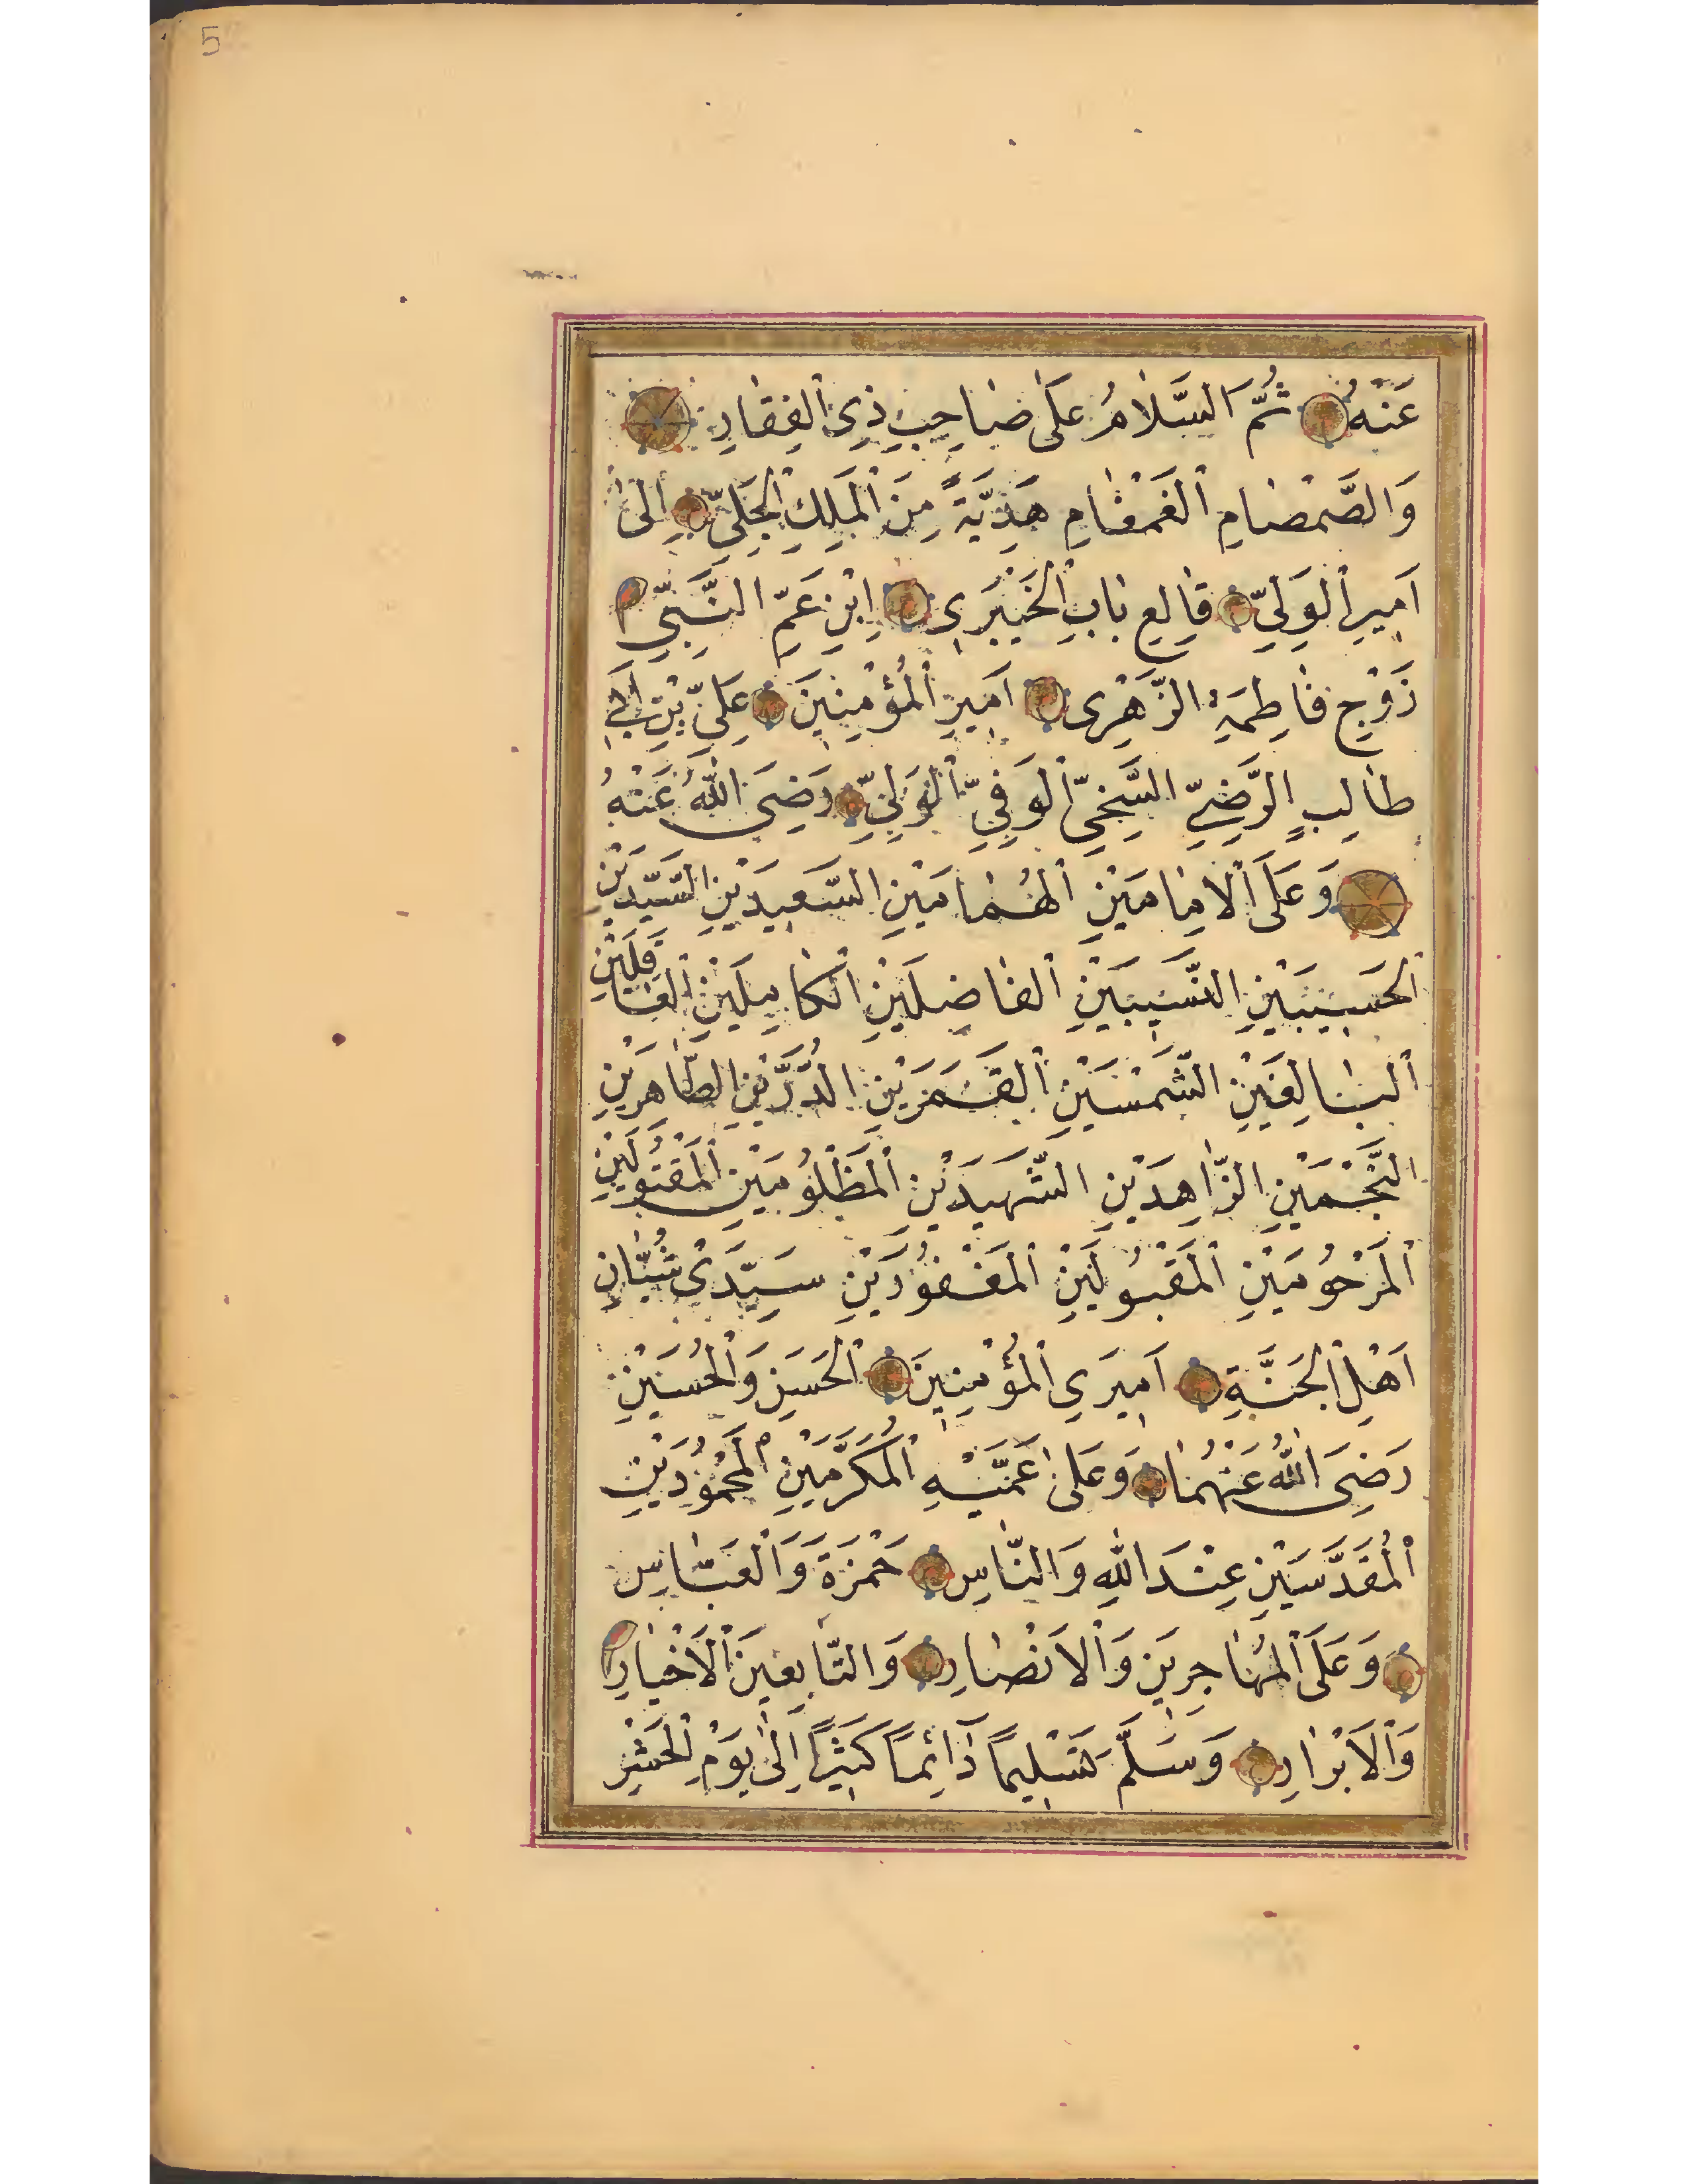 5
عَنْهُ ثُمَّ السَّلَامُ عَلٰى صَاحِبِ ذِى الْفِقَارِ
وَالصَّمْصَامِ الْغَمْقَامِ هَدِيَّةً مِنَ الْمَلِكِ الْجَلِىِّ اِلٰى
اَمِيرِ الْوَلِىِّ قَالِعِ بَابِ الْخَيْبَرِى اِبْنِ عَمِّ النَّبِىِّ
زَوْجِ فَاطِمَةِ الزَّهْرٰى اَمِيرِ الْمُؤْمِنِينَ عَلِىِّ بْنِ اَبِى
طَالِبٍ الرَّضِىِّ السَّخِىِّ الْوَفِىِّ الْوَلِىِّ رَضِىَ اللّٰهُ عَنْهُ
وَعَلَى الْاِمَامَيْنِ الْهُمَامَيْنِ السَّعِيدَيْنِ السَّيِّدَيْنِ
الْحَسِيبَيْنِ النَّسِيبَيْنِ الْفَاضِلَيْنِ الْكَامِلَيْنِ الْعَاقِلَيْنِ
الْبَالِغَيْنِ الشَّمْسَيْنِ الْقَمَرَيْنِ الدُّرَّيْنِ الطَّاهِرَيْنِ
النَّجْمَيْنِ الزَّاهِدَيْنِ الشَّهِيدَيْنِ الْمَظْلُومَيْنِ الْمَقْتُولَيْنِ
الْمَرْحُومَيْنِ الْمَقْبُولَيْنِ الْمَغْفُورَيْنِ سَيِّدَىْ شُبَّانِ
اَهْلِ الْجَنَّةِ اَمِيرَىِ الْمُؤْمِنِينَ الْحَسَنِ وَالْحُسَيْنِ
رَضِىَ اللّٰهُ عَنْهُمَا وَعَلٰى عَمَّيْهِ الْمُكَرَّمَيْنِ الْمَحْمُودَيْنِ
الْمُقَدَّسَيْنِ عِنْدَ اللّٰهِ وَالنَّاسِ حَمْزَةَ وَالْعَبَّاسِ
وَعَلَى الْمُهَاجِرِينَ وَالْاَنْصَارِ وَالتَّابِعِينَ الْاَخْيَارِ
وَالْاَبْرَارِ وَسَلَّمَ تَسْلِيمًا دَآئِمًا كَثِيرًا اِلٰى يَوْمِ الْحَشْرِ